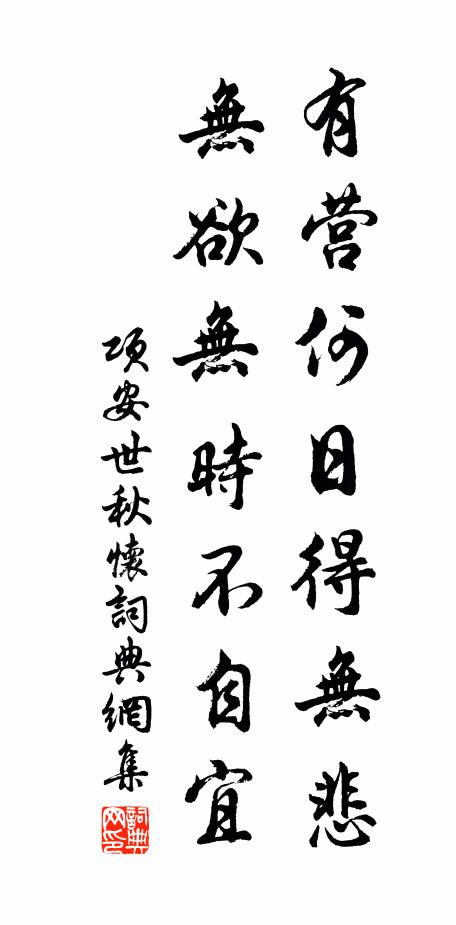 有营何日得無悲
無欲無時不自宜
项安世秋懷詞典網集
詞典网印